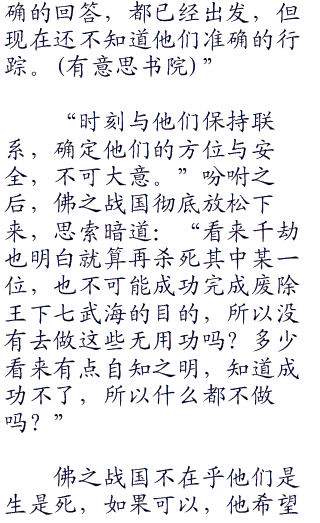 确的回答，都已经出发，但
现在还不知道他们准确的行
踪。(有意思书院)”
“时刻与他们保持联
系，确定他们的方位与安
全，不可大意。”吩咐之
后，佛之战国彻底放松下
来，思索暗道：“看来千劫
也明白就算再杀死其中某一
位，也不可能成功完成废除
王下七武海的目的，所以没
有去做这些无用功吗？多少
看来有点自知之明，知道成
功不了，所以什么都不做
吗？”
佛之战国不在乎他们是
生是死，如果可以，他希望